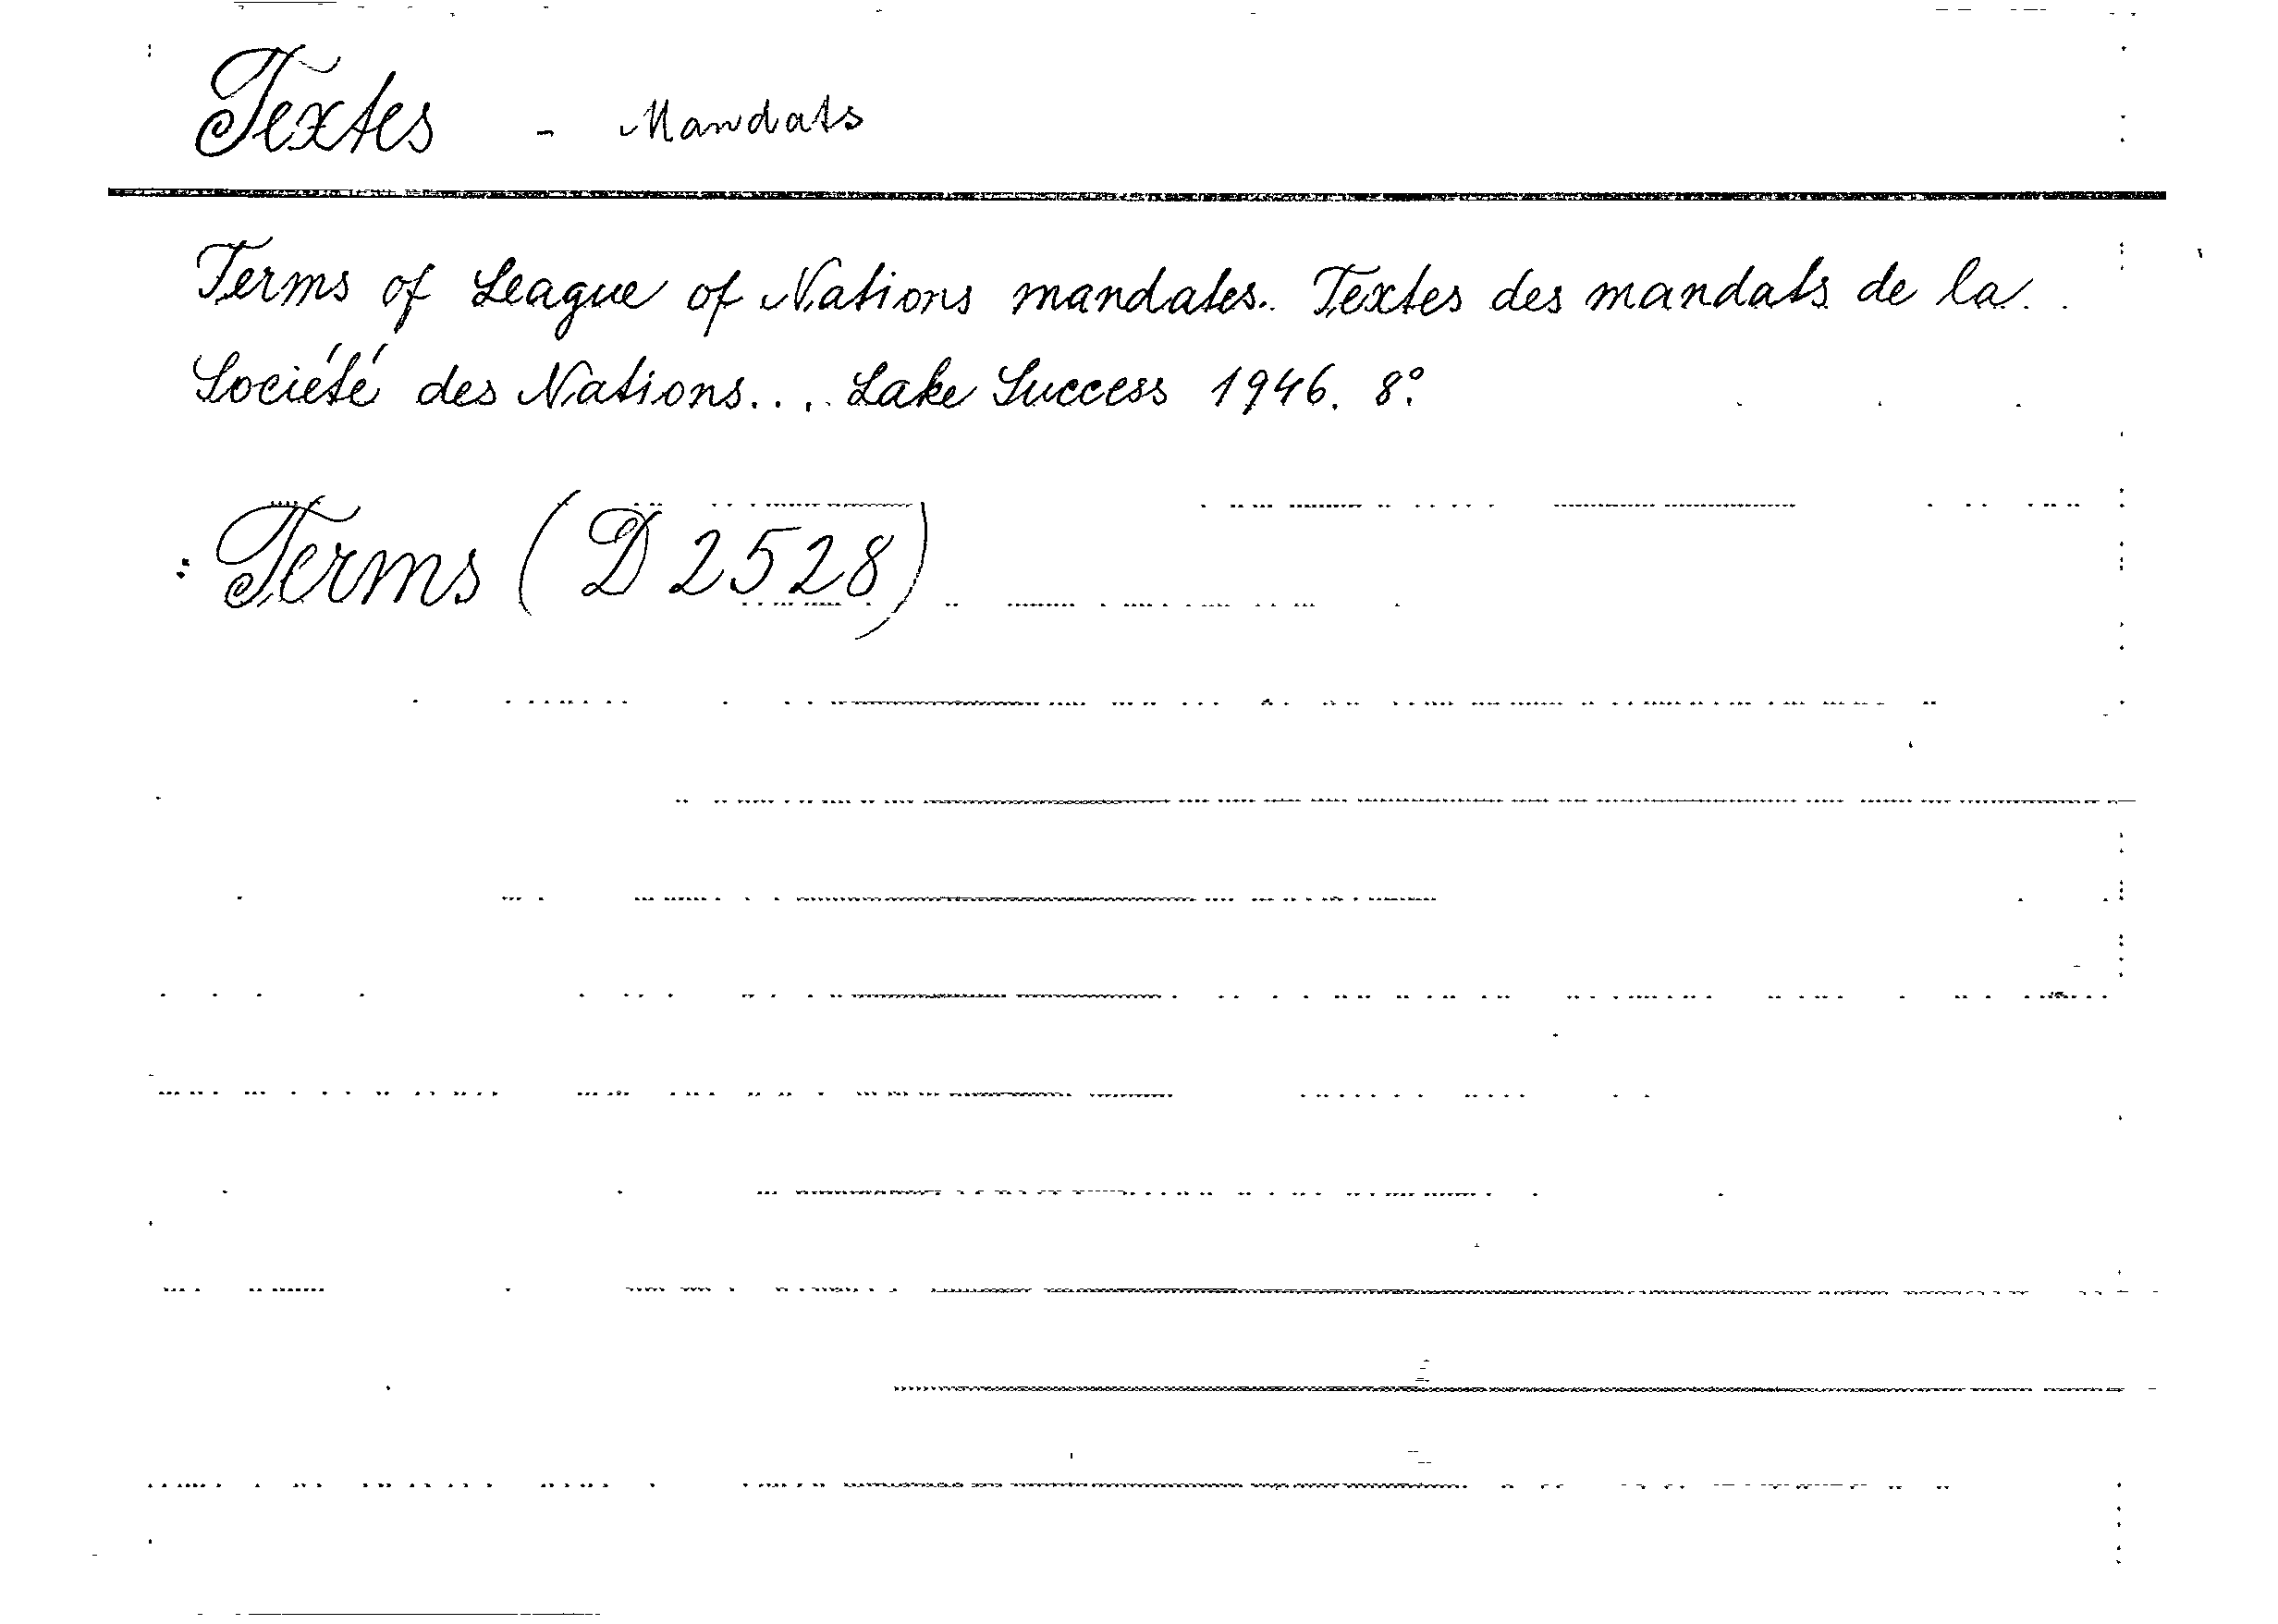 Textes - Mandats
Terms of League of Nations mandates. Textes des mandats de la
Société des Nations.... Lake Success 1946. 8°.
: Terms (D 2528)